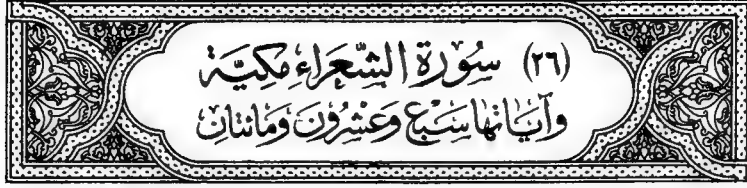 (٢٦) سُوْرَة الشُّعَرَاءِ مَكِيَّة
وَآيَاتهَا سَبْع وَعَشْرُونَ وَمَائتَانِ